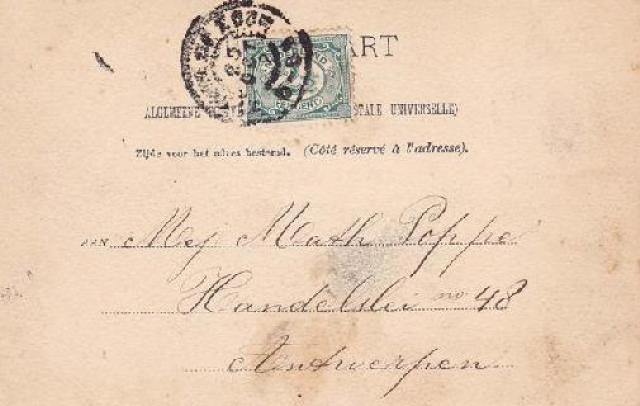 ART
ALGEMEENE STALE UNIVERSELLE)
Zijde voor het adres bestemd. (Côté réservé à l'adresse).
AAN Mej Math Poppe
Handelslei no 48
Antwerpen